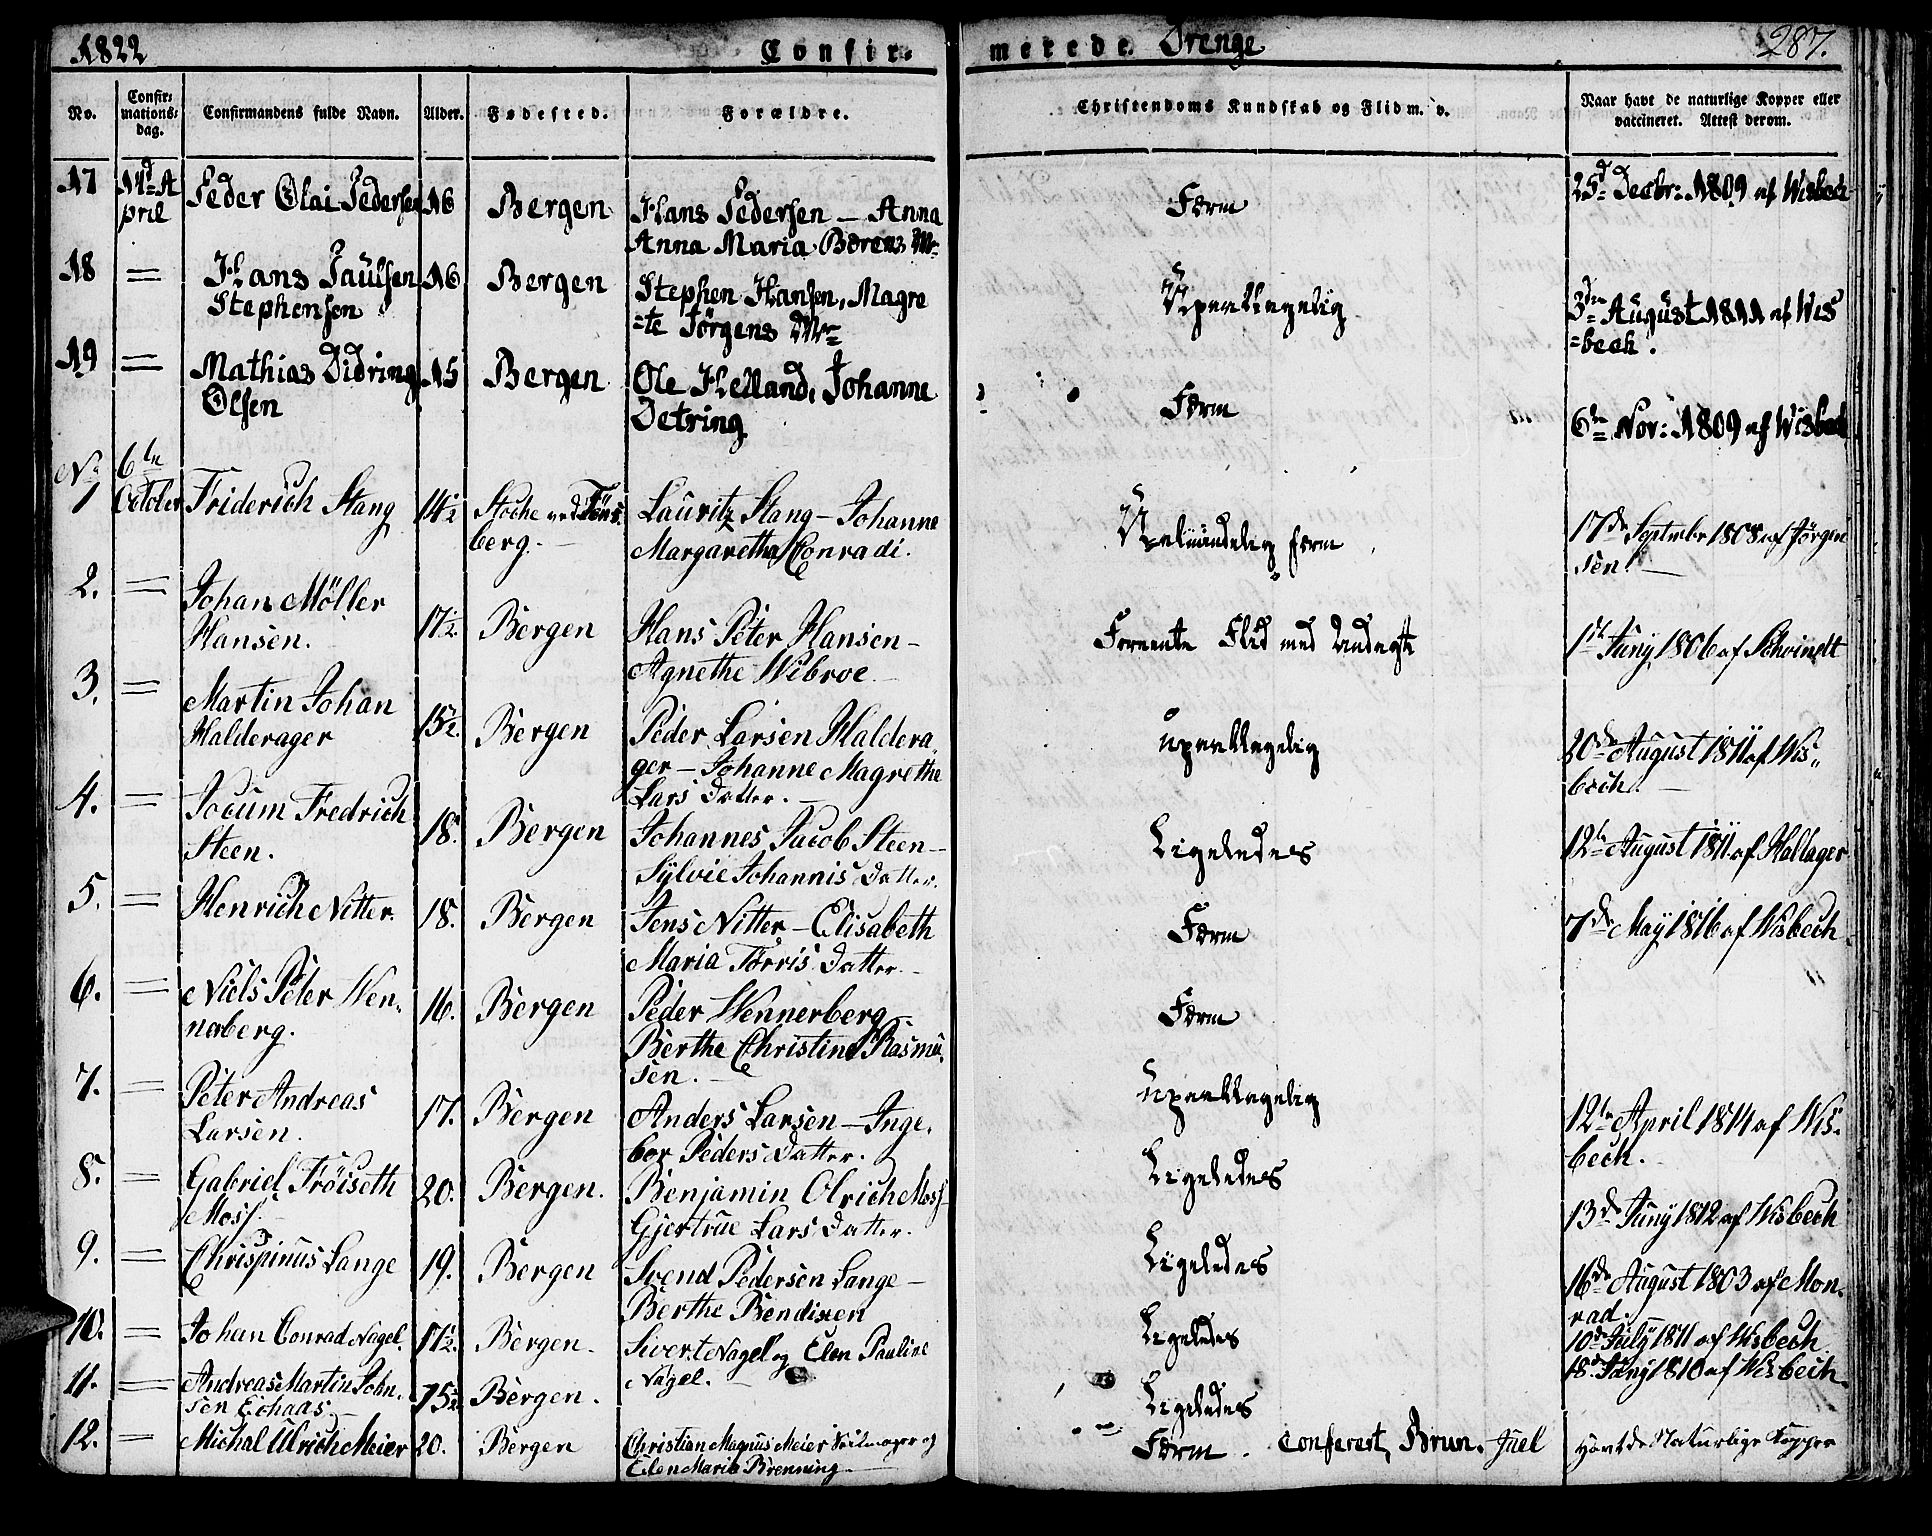 1822 Confir- merede Drenge 287.
No. Confirmationsdag. Confirmandens fulde Navn. Alder. Fødested. Forældre. Christendoms Kundskab og Flid m. v. Naar havt de naturlige Kopper eller vaccineret. Attest derom.
17 11d April Peder Olai Pedersen 16 Bergen Hans Pedersen — Anna
Anna Maria Bærens Færm 25d Decbr: 1809 af Wisbech
18 = Hans Paulsen
Stephensen 16 Bergen Stephen Hansen, Magre
=te Jørgens Upaaklagelig 3die August 1811 af Wis
=bech.
19 = Mathias Didring
Olsen 15 Bergen Ole Helland, Johanne
Detring Færm 6te Nov: 1809 af Wisbech
No 1 6te October Friderich Stang 14½ Stoche ved Töns
berg. — Lauritz Stang — Johanne
Margaretha Conradi. Ualmindelig færm 17de Septembr 1808 af Jørgen
sen. —
2. = Johan Möller
Hansen. 17½. Bergen Hans Peter Hansen —
Agnethe Wibroe — Foreente Flid med Andagt 1ste Juny 1806 af Schvindt
3. = Martin Johan
Halderager 15½. Bergen Peder Larsen Haldera,
ger — Johanne Magrethe
Lars Datter. — upaaklagelig 20de August 1811 af Wis,,
bech. —
4. = Jocum Fredrich
Steen. 18. Bergen Johannes Jacob Steen —
Sylvie Johannis Datter. Ligeledes 12te August 1811 af Hallager
5. = Henrich Nitter. 18. Bergen Jens Nitter — Elisabeth
Maria Törris Datter. — Færm 7de May 1816 af Wisbech
6. = Niels Peter Wen,
nerberg. 16. Bergen Peder Wennerberg —
Berthe Christine Rasmu,
sen. — Færm
7. = Peter Andreas
Larsen. 17. Bergen Anders Larsen — Inge,
bor Peders Datter. upaaklagelig 12te April 1811 af Wis,
bech.
8. = Gabriel Fröiseth
Moss. — 20. Bergen. Benjamin Olrich Moss
Gjertrue Lars Datter. Ligeledes 13de Juny 1812 af Wisbech
9. = Chrispinus Lange 19. Bergen Svend Pedersen Lange —
Berthe Bendixen Ligeledes 16de August 1803 af Mon,
rad.
10. = Johan Conrad Nagel. 17½. Bergen. Sivert Nagel og Elen Pauline
Nagel. — Ligeledes 10de July 1811 af Wisbech
11. = Andreas Martin John,
sen 15½ Bergen. Ligeledes 18d Juny 1810 af Wisbech.
12. = Michal Ulrich Meier 20. Bergen Christian Magnus Meier Seilmager og
Elen Maria Brenning — Færm. Confereret, Brun, Juel Havt de Naturlige Kopper